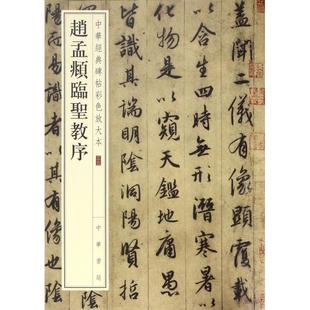 趙孟頫臨聖教序
中華經典碑帖彩色放大本
中華書局
蓋聞二儀有像顯
以含生四時無形潛寒暑
化物是以窺天鑑地庸愚
其端明陰洞陽賢哲
陽而易識者以其有像也